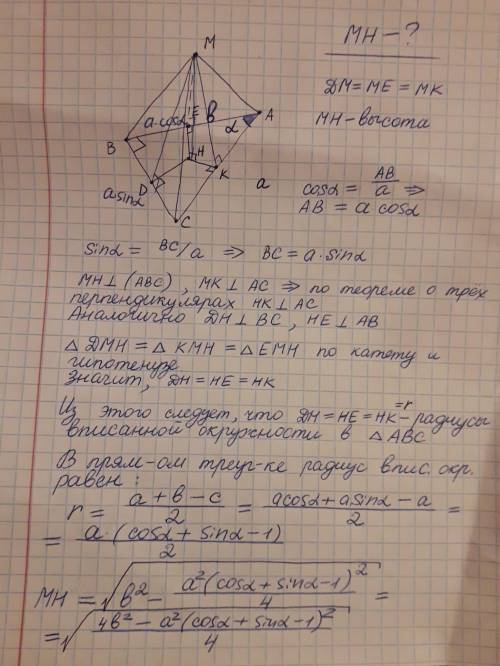 MH — ?
DM = ME = MK
MH - высота
M
a·cosα E в A
α
B
H
K
D
a sinα
C
a
cosα = AB/a ⇒
AB = a cosα
Sinα = BC/a ⇒ BC = a·sinα
MH ⊥ (ABC), MK ⊥ AC ⇒ по теореме о трёх
перпендикулярах HK ⊥ AC
Аналогично DH ⊥ BC, HE ⊥ AB
△DMH = △KMH = △EMH по катету и
гипотенузе
Значит, DH = HE = HK
Из этого следует, что DH = HE = HK = r - радиусы
вписанной окружности в △ABC
В прям-ом треуг-ке радиус впис. окр.
равен:
r = (a + в − c)/2 = (a cosα + a sinα − a)/2 =
= a·(cosα + sinα − 1)/2
MH = √(в² − a²(cosα + sinα − 1)²/4) =
= √((4в² − a²(cosα + sinα − 1)²)/4)